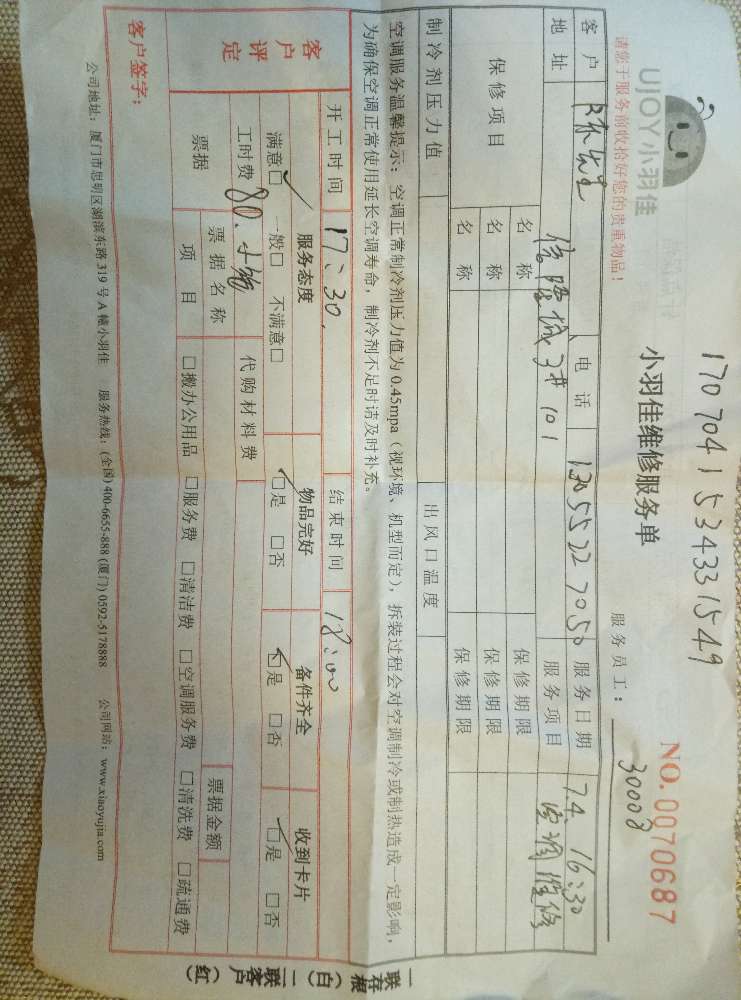 170704153433 1549
UJOY小羽佳
小羽佳维修服务单
NO.0070687
请您于服务前收拾好您的贵重物品!
服务员工: 30008
客户 陈先生 电话 13055227050 服务日期 7.4. 16:30
地址 3# 101 服务项目 空调维修
保修项目 名称 保修期限
名称 保修期限
名称 保修期限
制冷剂压力值 出风口温度
空调服务温馨提示:空调正常制冷剂压力值为0.45mpa(视环境、机型而定),拆装过程会对空调制冷或制热造成一定影响,
为确保空调正常使用延长空调寿命,制冷剂不足时请及时补充。
开工时间 17:30. 结束时间 18:00
客户评定 服务态度 物品完好 备件齐全 收到卡片
满意□ 一般□ 不满意□ □是 □否 □是 □否 □是 □否
工时费 80. 代购材料费
票据 票据名称 票据金额
项目 □搬办公用品 □服务费 □清洁费 □空调服务费 □清洗费 □疏通费
客户签字:
公司地址:厦门市思明区湖滨东路319号A幢小羽佳 服务热线:(全国)400-6655-888 (厦门)0592-5178888 公司网站:www.xiaoyujia.com
一联存根(白)二联客户(红)